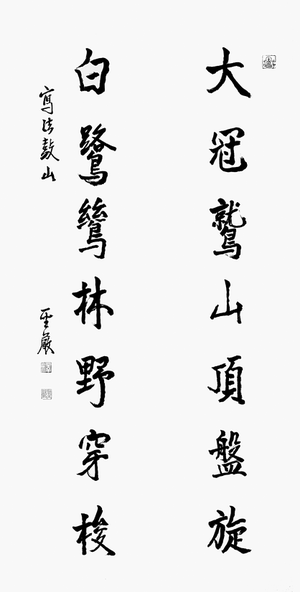 大冠鷲山頂盤旋
白鷺鷥林野穿梭
寫法鼓山
聖嚴